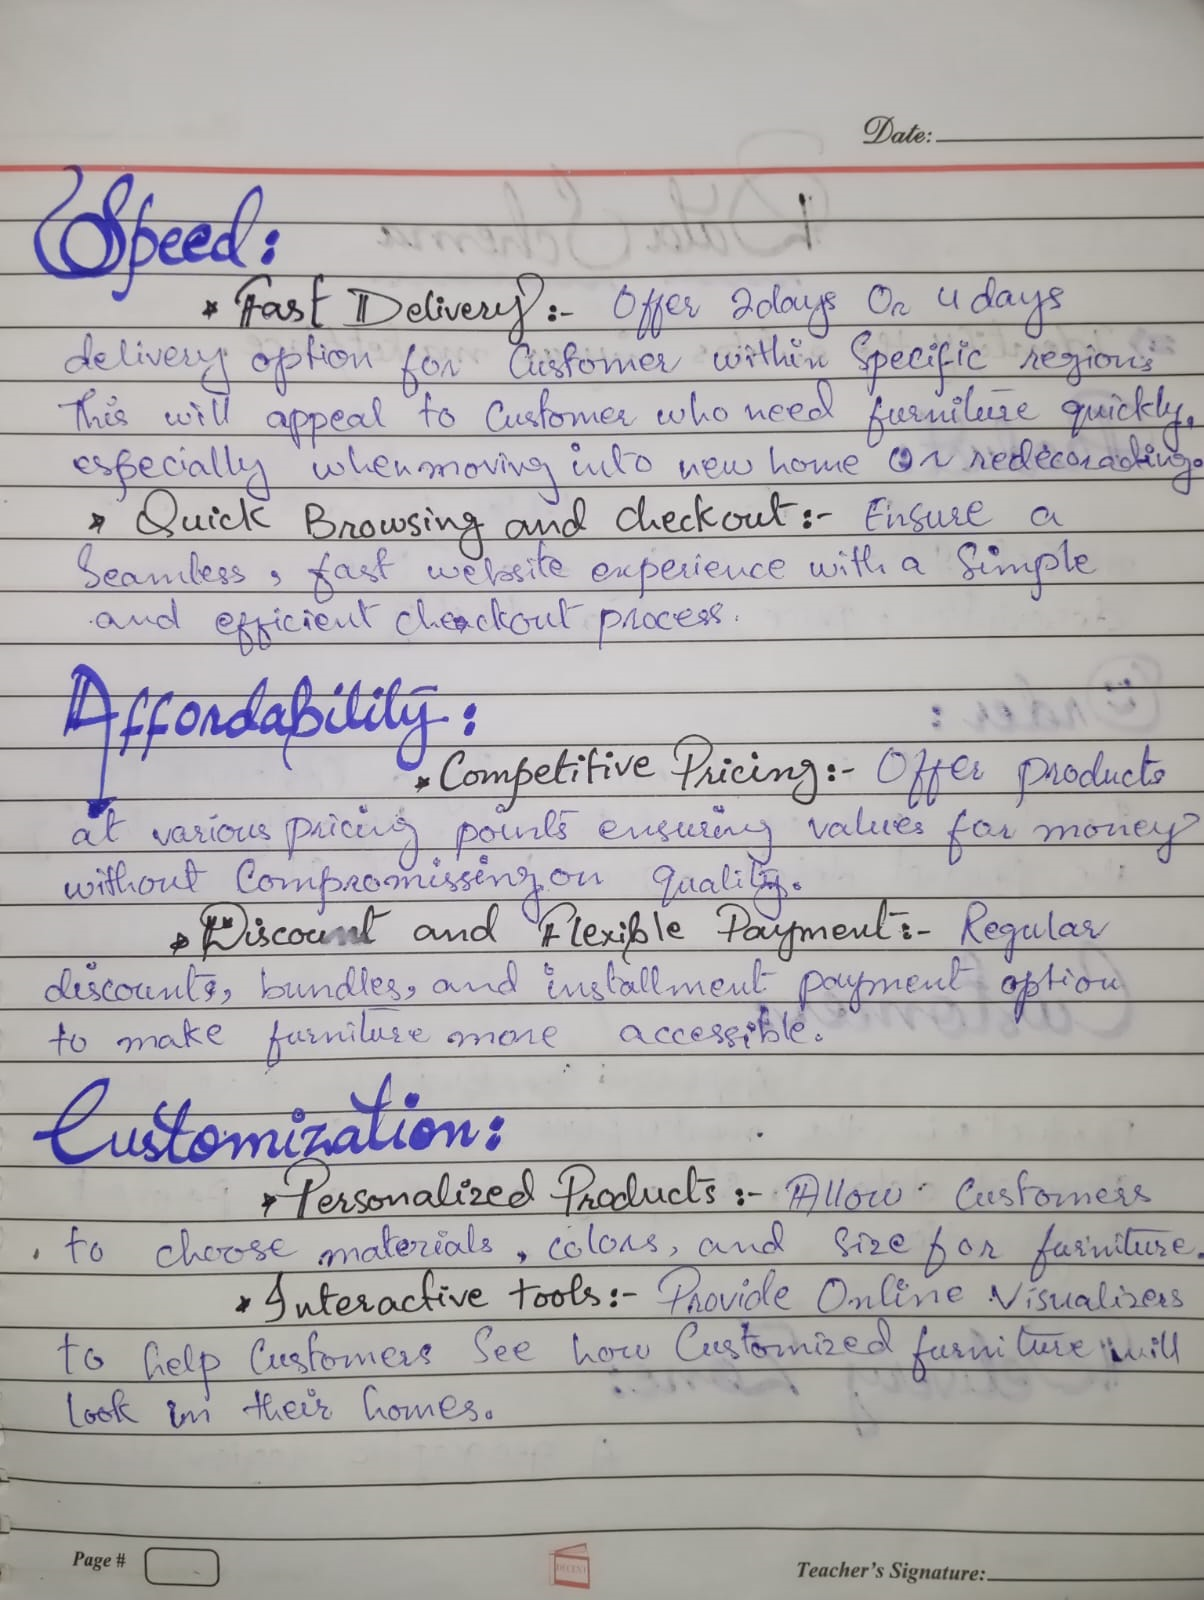 Date:
Speed:
* Fast Delivery:- Offer 2days Or 4days
delivery option for Customer within Specific regions
This will appeal to Customer who need furniture quickly,
especially when moving into new home Or redecorading.
* Quick Browsing and checkout:- Ensure a
Seamless, fast website experience with a Simple
and efficient checkout process.
Affordability:
* Competitive Pricing:- Offer products
at various pricing points ensuring values for money
without Compromissing on quality.
* Discount and Flexible Payment:- Regular
discounts, bundles, and installment payment option
to make furniture more accessible.
Customization:
* Personalized Products:- Allow Customers
to choose materials, colors, and Size for furniture.
* Interactive tools:- Provide Online Visualizers
to help Customers See how Customized furniture will
look in their homes.
Page #
DECENT
Teacher's Signature: